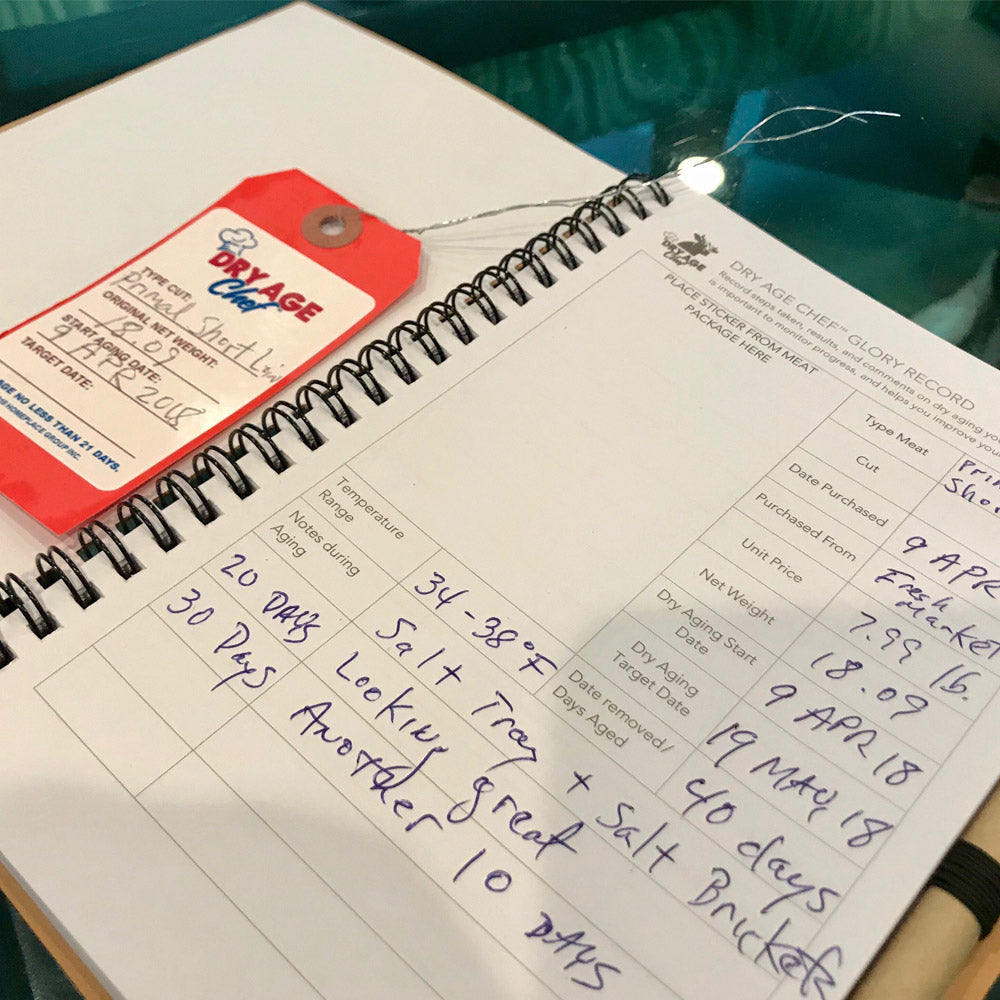 DRY AGE
Chef
TYPE CUT:
Primal Short Loin
ORIGINAL NET WEIGHT:
18.09
START AGING DATE:
9 APR 2018
TARGET DATE:
AGE NO LESS THAN 21 DAYS.
HOMEPLACE GROUP INC.
DRY AGE
Chef
DRY AGE CHEF™ GLORY RECORD
Record steps taken, results, and comments on dry aging
is important to monitor progress, and helps you improve your
PLACE STICKER FROM MEAT
PACKAGE HERE
Type Meat
Cut
Date Purchased 9 APR
Purchased From Fresh Market
Unit Price 7.99 lb.
Net Weight 18.09
Dry Aging Start Date 9 APR 18
Dry Aging Target Date 19 MAY 18
Date removed/ Days Aged 40 days
Temperature Range 34-38°F
Notes during Aging Salt Tray + Salt Brickets
20 DAYS Looking great
30 Days Another 10 DAYS